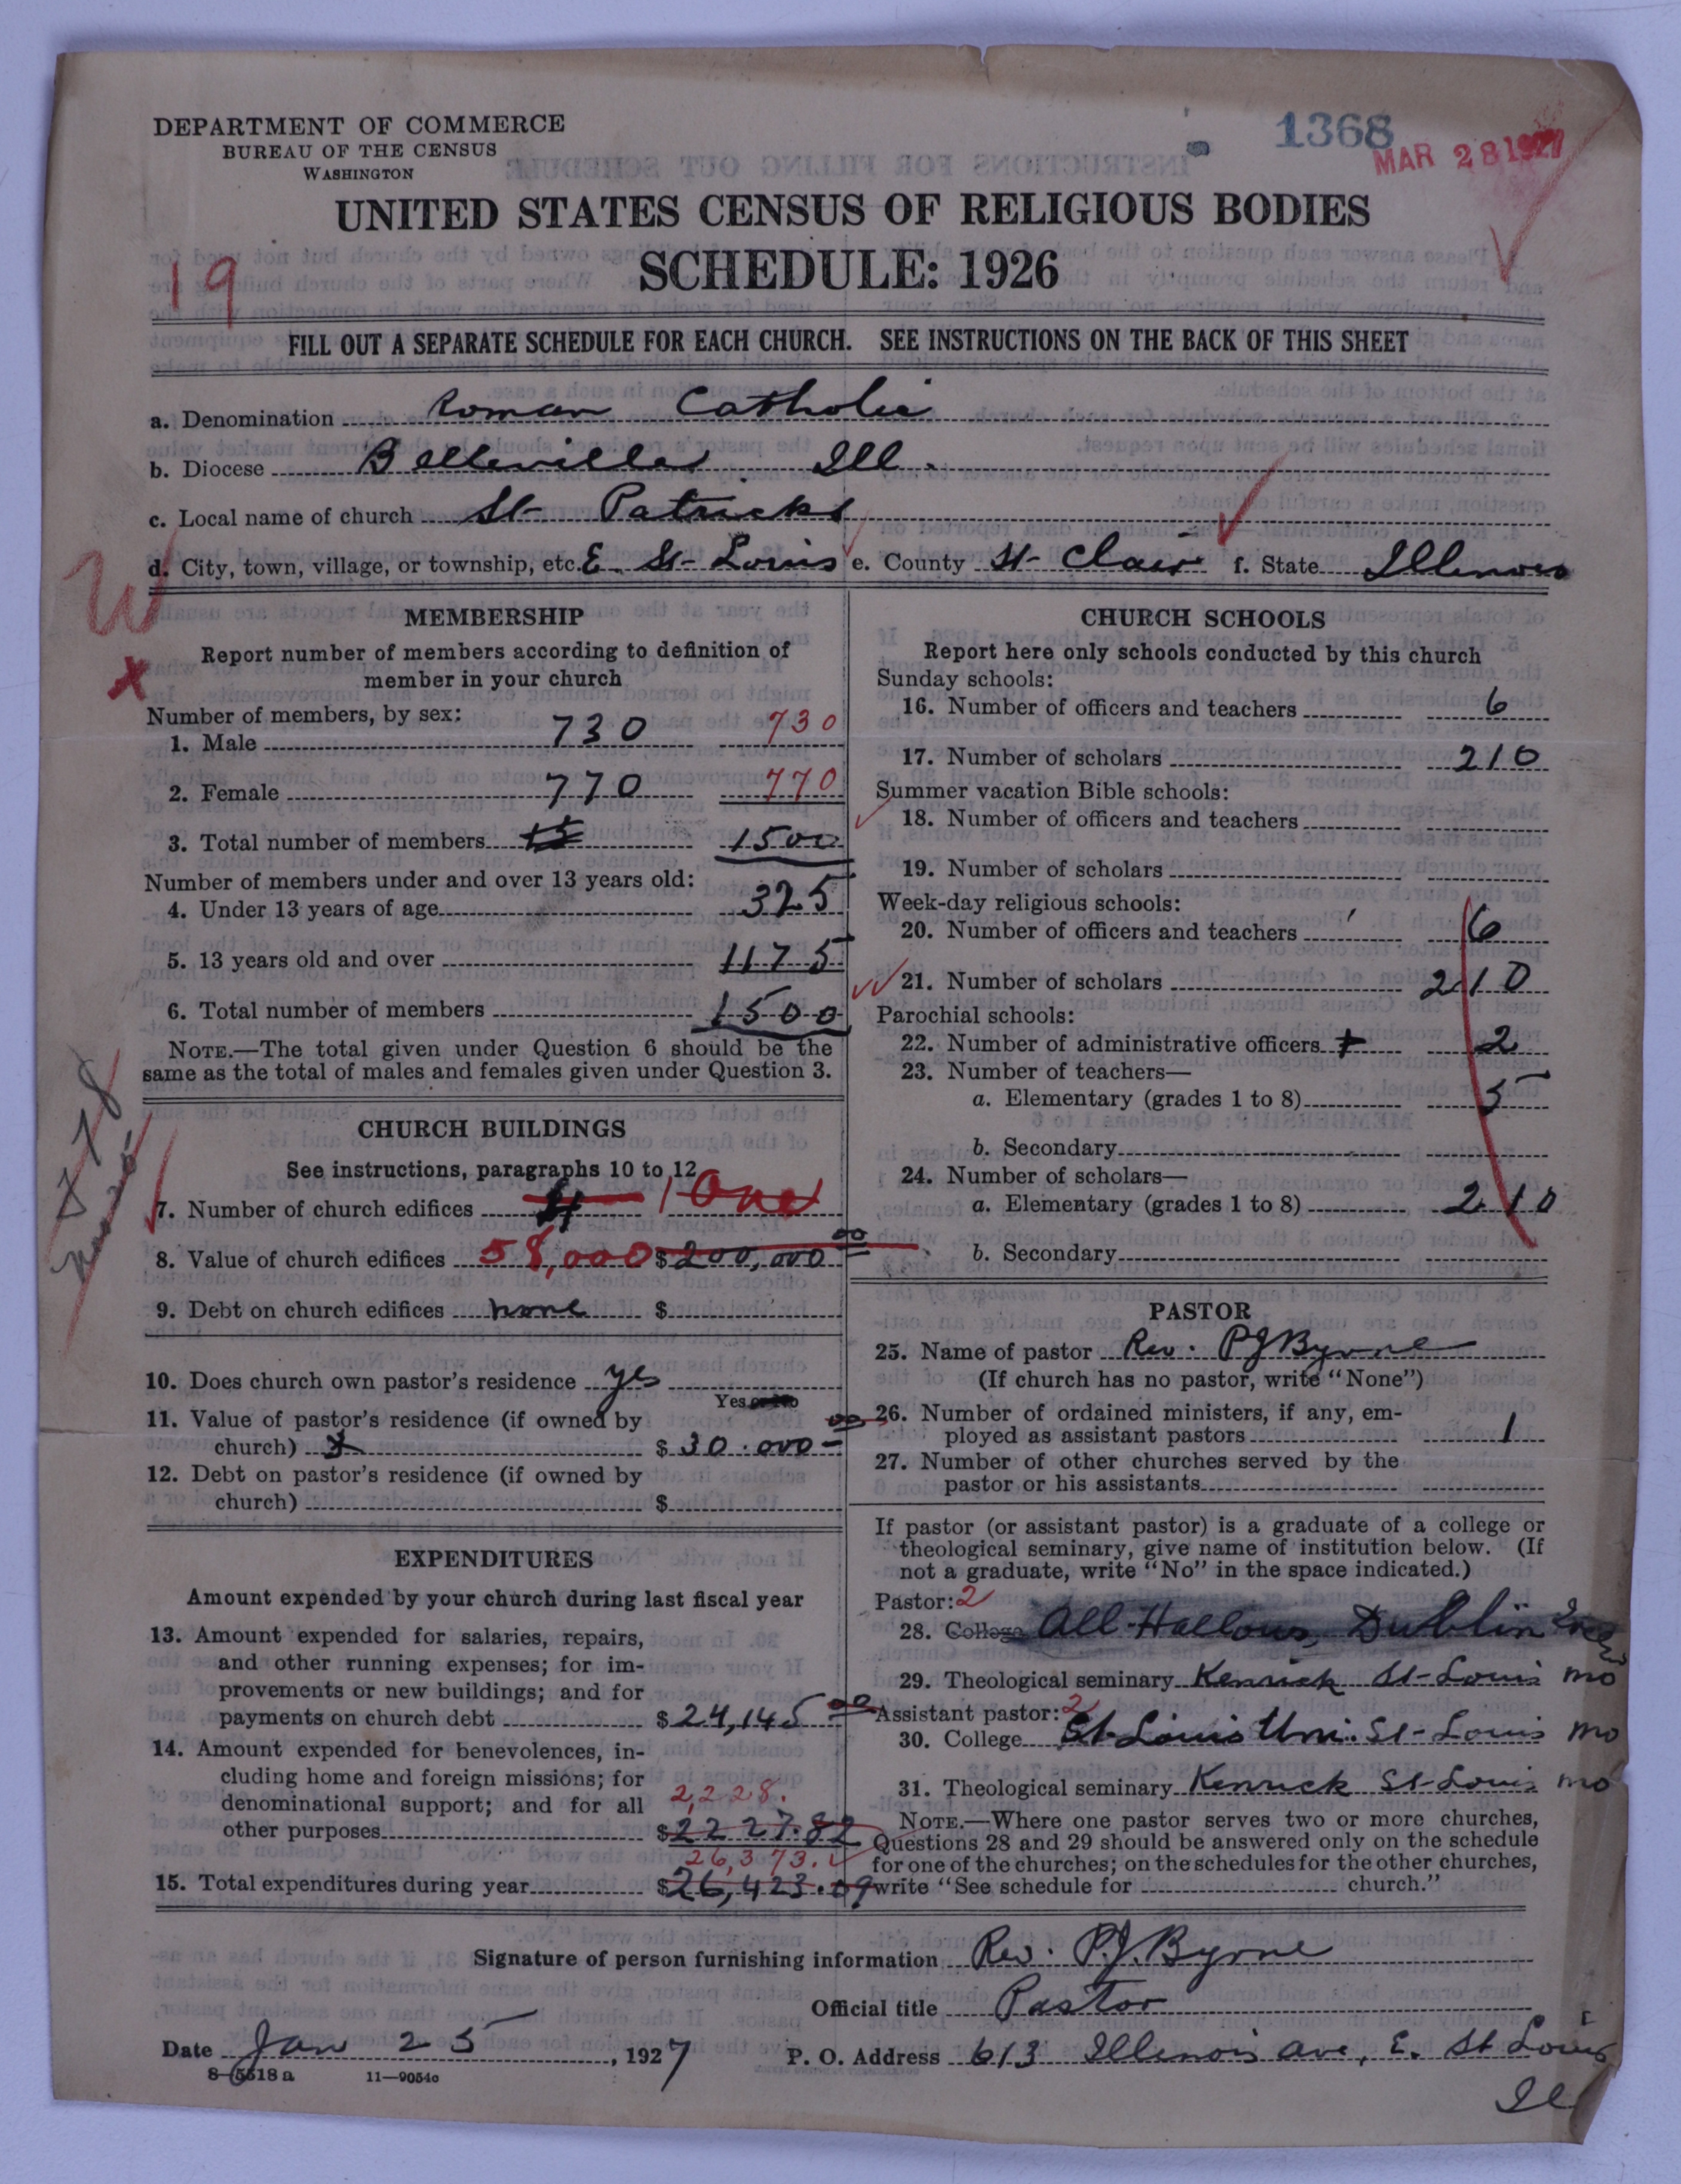 DEPARTMENT OF COMMERCE
BUREAU OF THE CENSUS
WASHINGTON
1368
MAR 28 1927
UNITED STATES CENSUS OF RELIGIOUS BODIES
SCHEDULE: 1926
19
FILL OUT A SEPARATE SCHEDULE FOR EACH CHURCH. SEE INSTRUCTIONS ON THE BACK OF THIS SHEET
a. Denomination Roman Catholic
b. Diocese Belleville Ill.
c. Local name of church St Patricks
d. City, town, village, or township, etc. E. St Louis e. County St Clair f. State Illinois
W
X
MEMBERSHIP
Report number of members according to definition of
member in your church
Number of members, by sex:
1. Male 730 730
2. Female 770 770
3. Total number of members 15 1500
Number of members under and over 13 years old:
4. Under 13 years of age 325
5. 13 years old and over 1175
6. Total number of members 1500
NOTE.—The total given under Question 6 should be the
same as the total of males and females given under Question 3.
CHURCH BUILDINGS
See instructions, paragraphs 10 to 12
7. Number of church edifices 4 1 One
8. Value of church edifices 58,000 $ 200,000 00
9. Debt on church edifices none $
10. Does church own pastor's residence yes
Yes or No
11. Value of pastor's residence (if owned by
church) $ 30.000 - 00
12. Debt on pastor's residence (if owned by
church) $
EXPENDITURES
Amount expended by your church during last fiscal year
13. Amount expended for salaries, repairs,
and other running expenses; for im-
provements or new buildings; and for
payments on church debt $ 24,145 00
14. Amount expended for benevolences, in-
cluding home and foreign missions; for
denominational support; and for all 2,228.
other purposes $ 2227.82
26,373.
15. Total expenditures during year $ 26,423.09
CHURCH SCHOOLS
Report here only schools conducted by this church
Sunday schools:
16. Number of officers and teachers 6
17. Number of scholars 210
Summer vacation Bible schools:
18. Number of officers and teachers
19. Number of scholars
Week-day religious schools:
20. Number of officers and teachers 6
21. Number of scholars 210
Parochial schools:
22. Number of administrative officers 2
23. Number of teachers—
a. Elementary (grades 1 to 8) 5
b. Secondary
24. Number of scholars—
a. Elementary (grades 1 to 8) 210
b. Secondary
PASTOR
25. Name of pastor Rev. PJ Byrne
(If church has no pastor, write "None")
26. Number of ordained ministers, if any, em-
ployed as assistant pastors 1
27. Number of other churches served by the
pastor or his assistants
If pastor (or assistant pastor) is a graduate of a college or
theological seminary, give name of institution below. (If
not a graduate, write "No" in the space indicated.)
Pastor: 2
28. College All Hallows, Dublin
29. Theological seminary Kenrick St Louis Mo
Assistant pastor: 2
30. College St Louis Uni. St Louis Mo
31. Theological seminary Kenrick St Louis Mo
NOTE.—Where one pastor serves two or more churches,
Questions 28 and 29 should be answered only on the schedule
for one of the churches; on the schedules for the other churches,
write "See schedule for church."
Signature of person furnishing information Rev. P.J. Byrne
Official title Pastor
Date Jan 25, 1927 P. O. Address 613 Illinois Ave, E. St Louis
Ill
8—5518 a 11—9054c